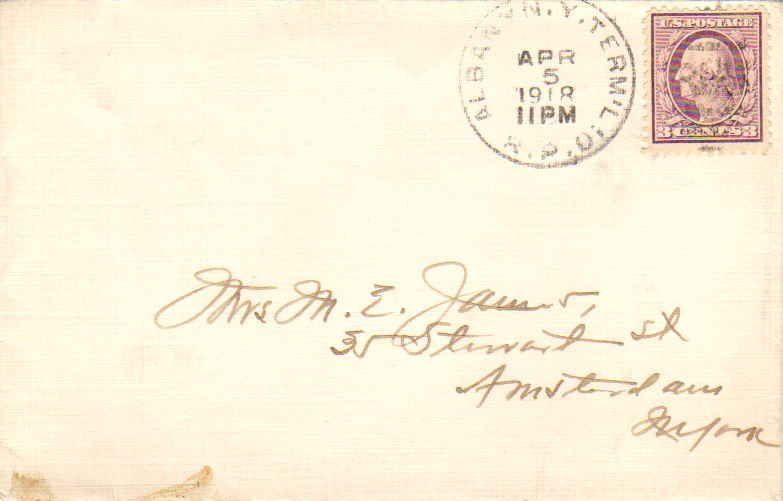 ALBANY N.Y. TERM'L.
APR
5
1918
11PM
R.P.O.
U.S. POSTAGE
3 CENTS 3
Mrs M. E. James,
35 Stewart St
Amsterdam
N York